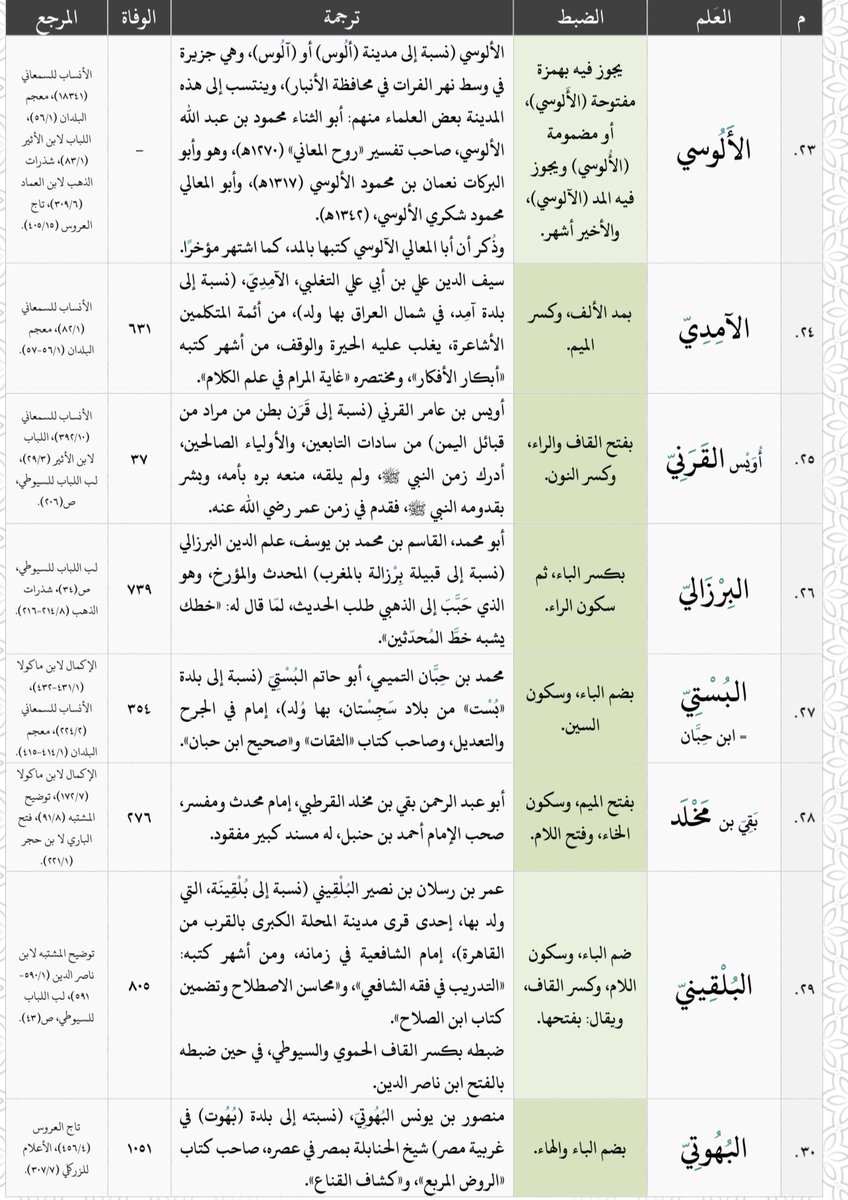 م العَلم الضبط ترجمة الوفاة المرجع
٢٣.
الأَلُوسي
يجوز فيه بهمزة
مفتوحة (الأَلوسي)،
أو مضمومة
(الأُلوسي) ويجوز
فيه المد (الآلوسي)،
والأخير أشهر.
الألوسي (نسبة إلى مدينة (ألُوس) أو (آلُوس)، وهي جزيرة
في وسط نهر الفرات في محافظة الأنبار)، وينتسب إلى هذه
المدينة بعض العلماء منهم: أبو الثناء محمود بن عبد الله
الألوسي، صاحب تفسير «روح المعاني» (١٢٧٠هـ)، وهو وأبو
البركات نعمان بن محمود الألوسي (١٣١٧هـ)، وأبو المعالي
محمود شكري الألوسي، (١٣٤٢هـ).
وذُكر أن أبا المعالي الآلوسي كتبها بالمد، كما اشتهر مؤخرًا.
–
الأنساب للسمعاني
(١٨٣٤١)، معجم
البلدان (٥٦/١)،
اللباب لابن الأثير
(٨٣/١)، شذرات
الذهب لابن العماد
(٣٠٩/٦)، تاج
العروس (٤٠٥/١٥).
٢٤.
الآمِدِيّ
بمد الألف، وكسر
الميم.
سيف الدين علي بن أبي علي التغلبي، الآمِدِيّ، (نسبة إلى
بلدة آمِد، في شمال العراق بها ولد)، من أئمة المتكلمين
الأشاعرة، يغلب عليه الحيرة والوقف، من أشهر كتبه
«أبكار الأفكار»، ومختصره «غاية المرام في علم الكلام».
٦٣١
الأنساب للسمعاني
(٨٢/١)، معجم
البلدان (٥٦/١-٥٧).
٢٥.
أُوَيْس القَرَنِيّ
بفتح القاف والراء،
وكسر النون.
أويس بن عامر القرني (نسبة إلى قَرَن بطن من مراد من
قبائل اليمن) من سادات التابعين، والأولياء الصالحين،
أدرك زمن النبي ﷺ، ولم يلقه، منعه بره بأمه، وبشر
بقدومه النبي ﷺ، فقدم في زمن عمر رضي الله عنه.
٣٧
الأنساب للسمعاني
(٣٩٢/١٠)، اللباب
لابن الأثير (٢٩/٣)،
لب اللباب للسيوطي،
ص(٢٠٦).
٢٦.
البِرْزَاليّ
بكسر الباء، ثم
سكون الراء.
أبو محمد، القاسم بن محمد بن يوسف، علم الدين البرزالي
(نسبة إلى قبيلة بِرْزالة بالمغرب) المحدث والمؤرخ، وهو
الذي حَبَّبَ إلى الذهبي طلب الحديث، لمّا قال له: «خطك
يشبه خطَّ المُحدّثين».
٧٣٩
لب اللباب للسيوطي،
ص(٣٤)، شذرات
الذهب (٢١٤/٨-٢١٦).
٢٧.
البُسْتِيّ
= ابن حِبَّان
بضم الباء، وسكون
السين.
محمد بن حِبَّان التميمي، أبو حاتم البُسْتِيّ (نسبة إلى بلدة
«بُسْت» من بلاد سَجِسْتان، بها وُلد)، إمام في الجرح
والتعديل، وصاحب كتاب «الثقات» و«صحيح ابن حبان».
٣٥٤
الإكمال لابن ماكولا
(٤٣١/١-٤٣٢)،
الأنساب للسمعاني
(٢٢٤/٢)، معجم
البلدان (٤١٤/١-٤١٥).
٢٨.
بَقِيّ بن مَخْلَد
بفتح الميم، وسكون
الخاء، وفتح اللام.
أبو عبد الرحمن بقي بن مخلد القرطبي، إمام محدث ومفسر،
صحب الإمام أحمد بن حنبل، له مسند كبير مفقود.
٢٧٦
الإكمال لابن ماكولا
(١٧٢/٧)، توضيح
المشتبه (٩١/٨)، فتح
الباري لا بن حجر
(٢٢١/١).
٢٩.
البُلْقِينيّ
ضم الباء، وسكون
اللام، وكسر القاف،
ويقال: بفتحها.
عمر بن رسلان بن نصير البُلْقِيني (نسبة إلى بُلْقِينَة، التي
ولد بها، إحدى قرى مدينة المحلة الكبرى بالقرب من
القاهرة)، إمام الشافعية في زمانه، ومن أشهر كتبه:
«التدريب في فقه الشافعي»، و«محاسن الاصطلاح وتضمين
كتاب ابن الصلاح».
ضبطه بكسر القاف الحموي والسيوطي، في حين ضبطه
بالفتح ابن ناصر الدين.
٨٠٥
توضيح المشتبه لابن
ناصر الدين (٥٩٠/١-
٥٩١)، لب اللباب
للسيوطي، ص(٤٣).
٣٠.
البُهُوتِيّ
بضم الباء والهاء.
منصور بن يونس البُهُوتِيّ، (نسبته إلى بلدة (بُهُوت) في
غربية مصر) شيخ الحنابلة بمصر في عصره، صاحب كتاب
«الروض المربع»، و«كشاف القناع».
١٠٥١
تاج العروس
(٤٥٦/٤)، الأعلام
للزركلي (٣٠٧/٧).